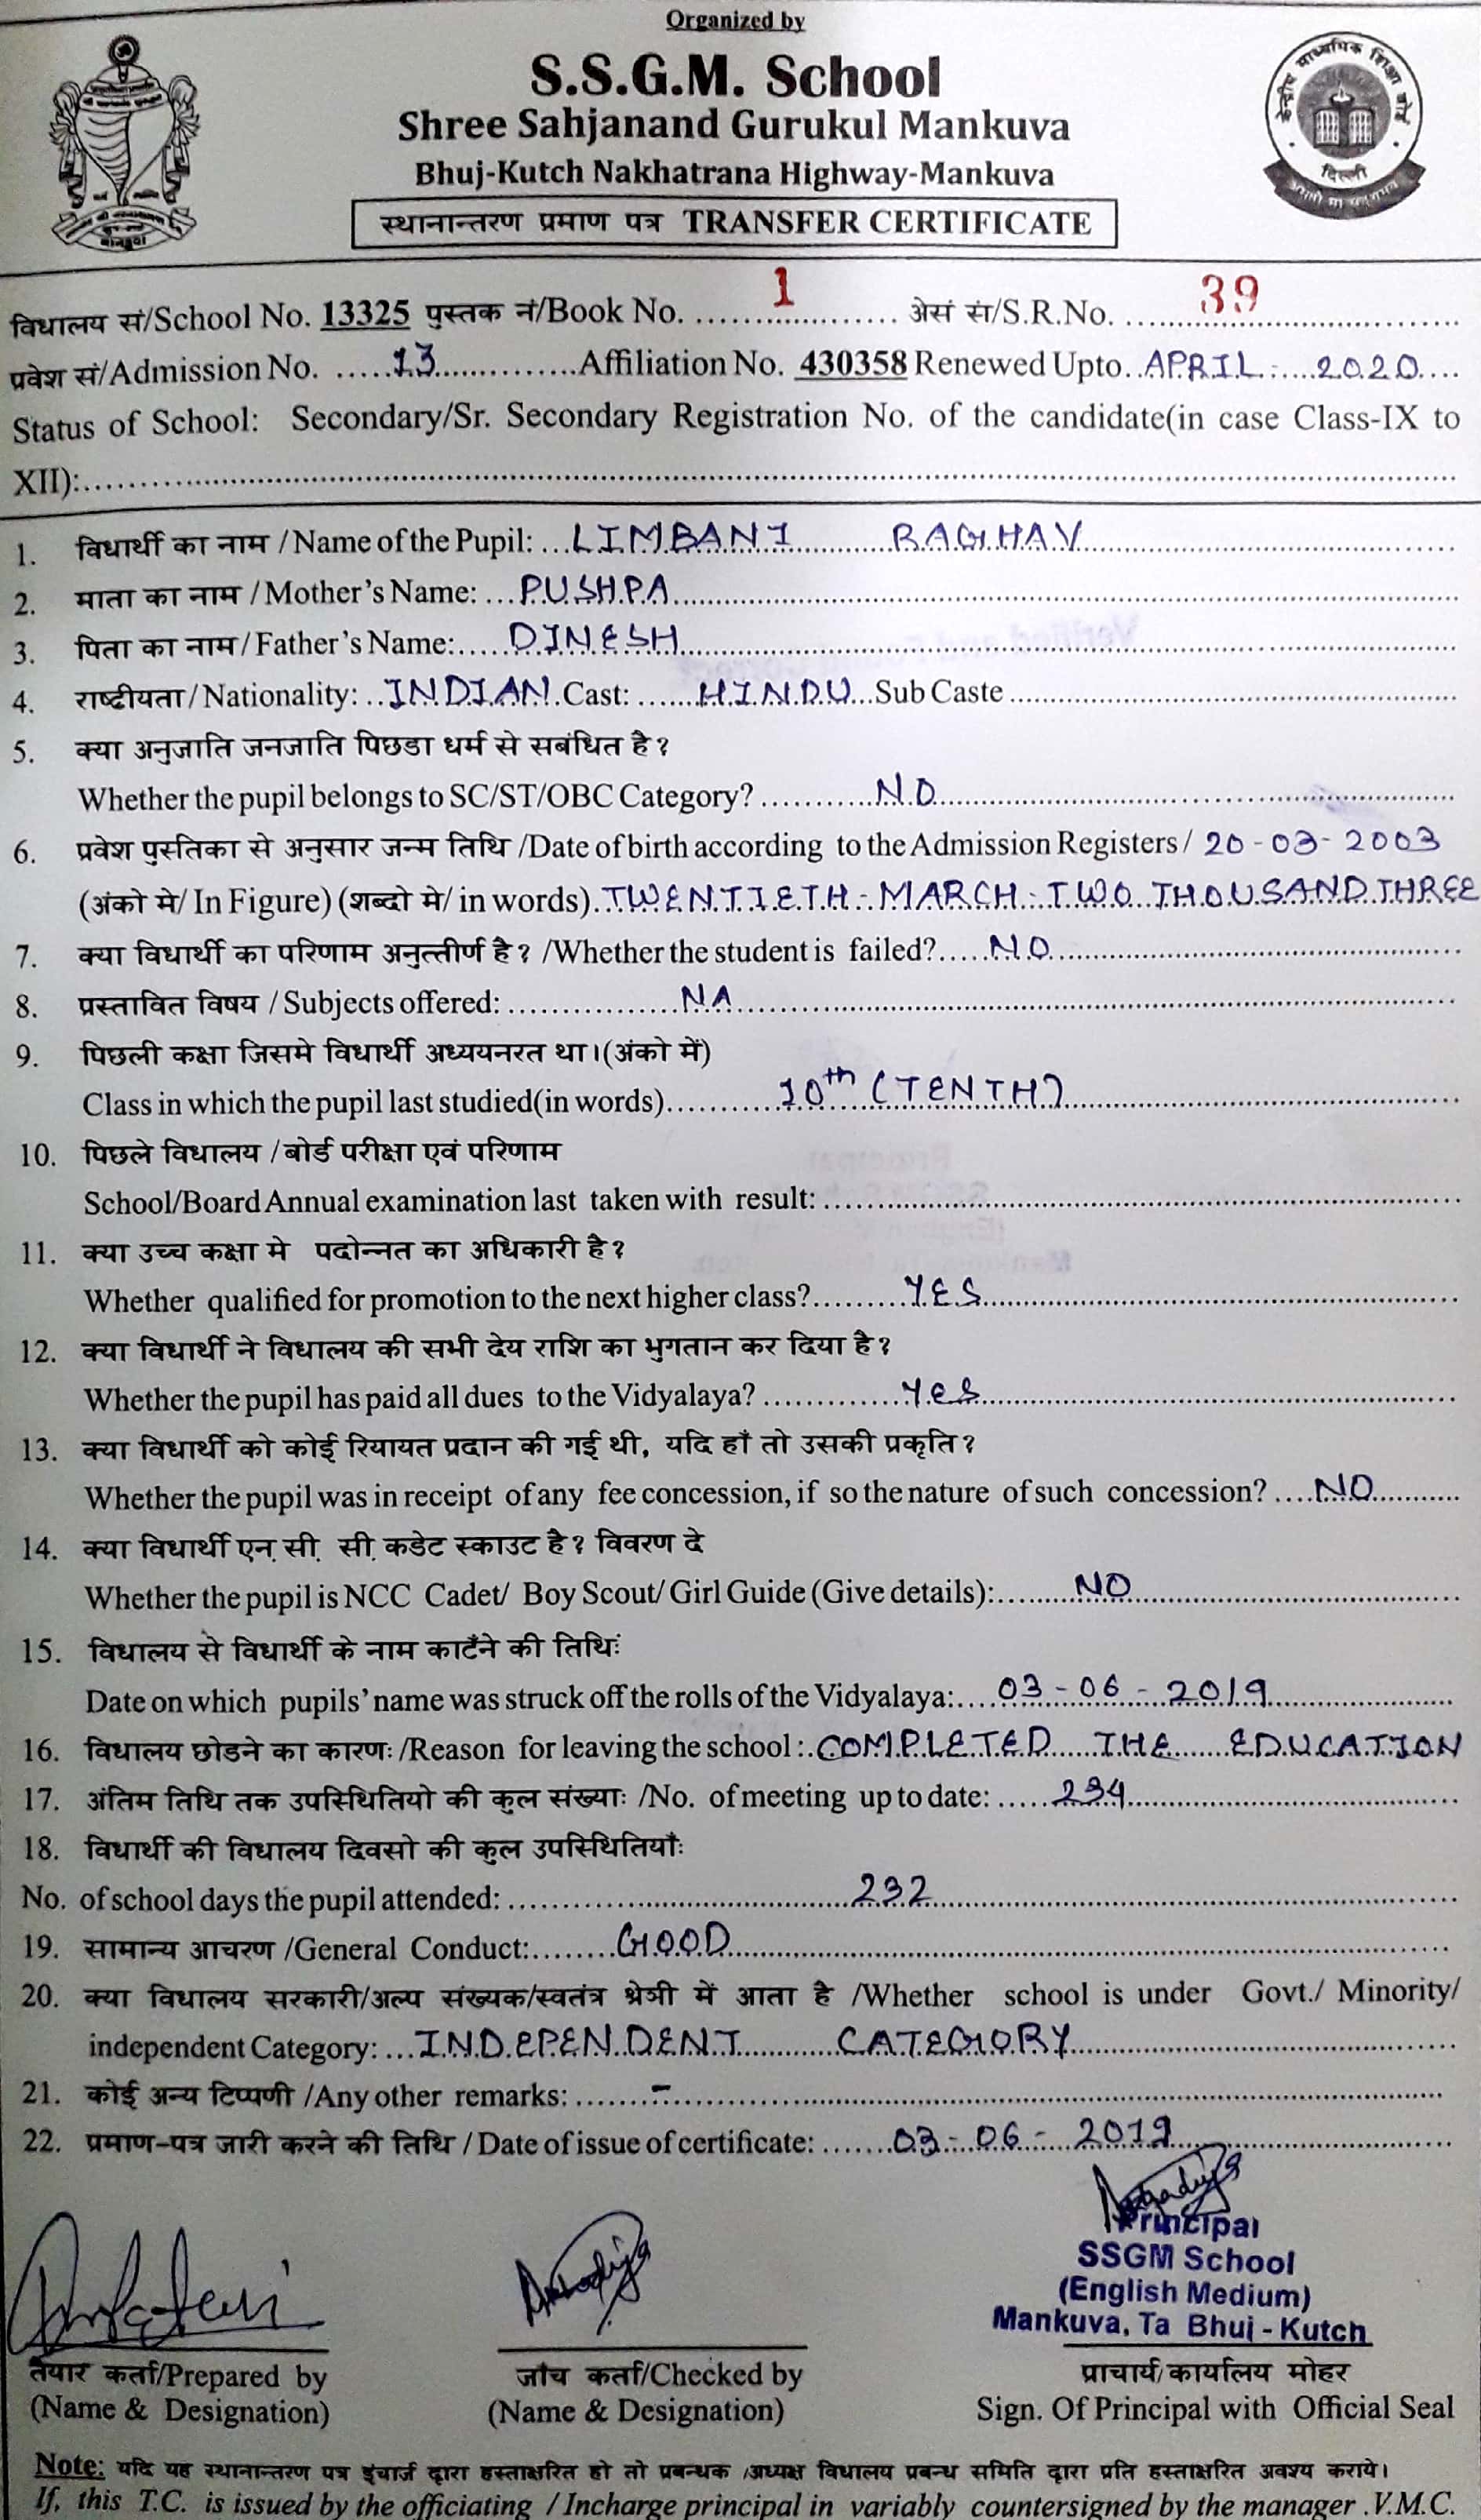 Organized by
S.S.G.M. School
Shree Sahjanand Gurukul Mankuva
Bhuj-Kutch Nakhatrana Highway-Mankuva
स्थानान्तरण प्रमाण पत्र TRANSFER CERTIFICATE
केन्द्रीय माध्यमिक शिक्षा बोर्ड
दिल्ली
विधालय सं/School No. 13325 पुस्तक नं/Book No. 1 अेसं सं/S.R.No. 39
प्रवेश सं/Admission No. 13 Affiliation No. 430358 Renewed Upto. APRIL - 2020
Status of School: Secondary/Sr. Secondary Registration No. of the candidate(in case Class-IX to
XII):
1. विधार्थी का नाम / Name of the Pupil: LIMBANI RAGHAV
2. माता का नाम / Mother's Name: PUSHPA
3. पिता का नाम / Father's Name: DINESH
4. राष्टीयता / Nationality: INDIAN Cast: HINDU Sub Caste
5. क्या अनुजाति जनजाति पिछडा धर्म से सबंधित है?
Whether the pupil belongs to SC/ST/OBC Category? NO
6. प्रवेश पुस्तिका से अनुसार जन्म तिथि /Date of birth according to the Admission Registers / 20-03-2003
(अंको मे/ In Figure) (शब्दो मे/ in words) TWENTIETH - MARCH - TWO THOUSAND THREE
7. क्या विधार्थी का परिणाम अनुत्तीर्ण है? /Whether the student is failed? NO
8. प्रस्तावित विषय / Subjects offered: NA
9. पिछली कक्षा जिसमे विधार्थी अध्ययनरत था।(अंको में)
Class in which the pupil last studied(in words) 10th (TENTH)
10. पिछले विधालय /बोर्ड परीक्षा एवं परिणाम
School/Board Annual examination last taken with result:
11. क्या उच्च कक्षा मे पदोन्नत का अधिकारी है?
Whether qualified for promotion to the next higher class? YES
12. क्या विधार्थी ने विधालय की सभी देय राशि का भुगतान कर दिया है?
Whether the pupil has paid all dues to the Vidyalaya? YES
13. क्या विधार्थी को कोई रियायत प्रदान की गई थी, यदि हाँ तो उसकी प्रकृति?
Whether the pupil was in receipt of any fee concession, if so the nature of such concession? NO
14. क्या विधार्थी एन. सी. सी. कडेट स्काउट है? विवरण दे
Whether the pupil is NCC Cadet/ Boy Scout/ Girl Guide (Give details): NO
15. विधालय से विधार्थी के नाम काटॅने की तिथिः
Date on which pupils' name was struck off the rolls of the Vidyalaya: 03-06-2019
16. विधालय छोडने का कारणः /Reason for leaving the school : COMPLETED THE EDUCATION
17. अंतिम तिथि तक उपस्थितियो की कुल संख्याः /No. of meeting up to date: 234
18. विधार्थी की विधालय दिवसो की कुल उपस्थितियाँः
No. of school days the pupil attended: 232
19. सामान्य आचरण /General Conduct: GOOD
20. क्या विधालय सरकारी/अल्प संख्यक/स्वतंत्र श्रेणी में आता है /Whether school is under Govt./ Minority/
independent Category: INDEPENDENT CATEGORY
21. कोई अन्य टिप्पणी /Any other remarks: -
22. प्रमाण-पत्र जारी करने की तिथि / Date of issue of certificate: 03-06-2019
Principal
SSGM School
(English Medium)
Mankuva, Ta Bhuj - Kutch
तैयार कर्ता/Prepared by जाँच कर्ता/Checked by प्राचार्य/कार्यालय मोहर
(Name & Designation) (Name & Designation) Sign. Of Principal with Official Seal
Note: यदि यह स्थानान्तरण पत्र इंचार्ज द्वारा हस्ताक्षरित हो तो प्रबन्धक /अध्यक्ष विधालय प्रबन्ध समिति द्वारा प्रति हस्ताक्षरित अवश्य कराये।
If, this T.C. is issued by the officiating / Incharge principal in variably countersigned by the manager .V.M.C.